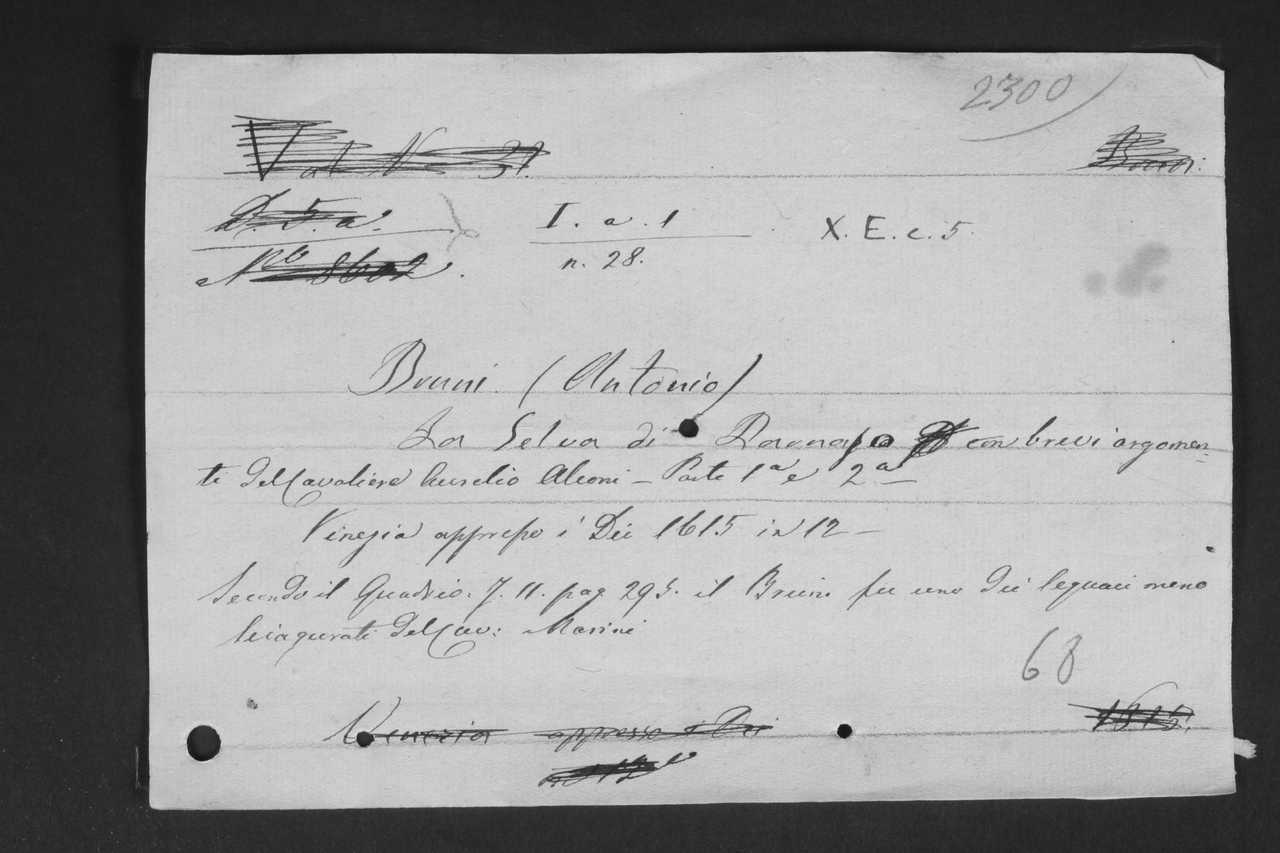 2300
Vol. N. 31.
I. a. 1
X. E. c. 5.
n. 28.
Nº 8602.
Bruni (Antonio)
La Selva di Parnaso con brevi argomen=
ti del Cavaliere Aurelio Aleoni - Parte 1a e 2a
Vinezia appresso i Dei 1615 in 12 -
Secondo il Quadrio. T. 11. pag 295. il Bruni fu uno dei seguaci meno
sciagurati del Cav: Marini
68
Venezia appresso i Dei
1615.
in 12º